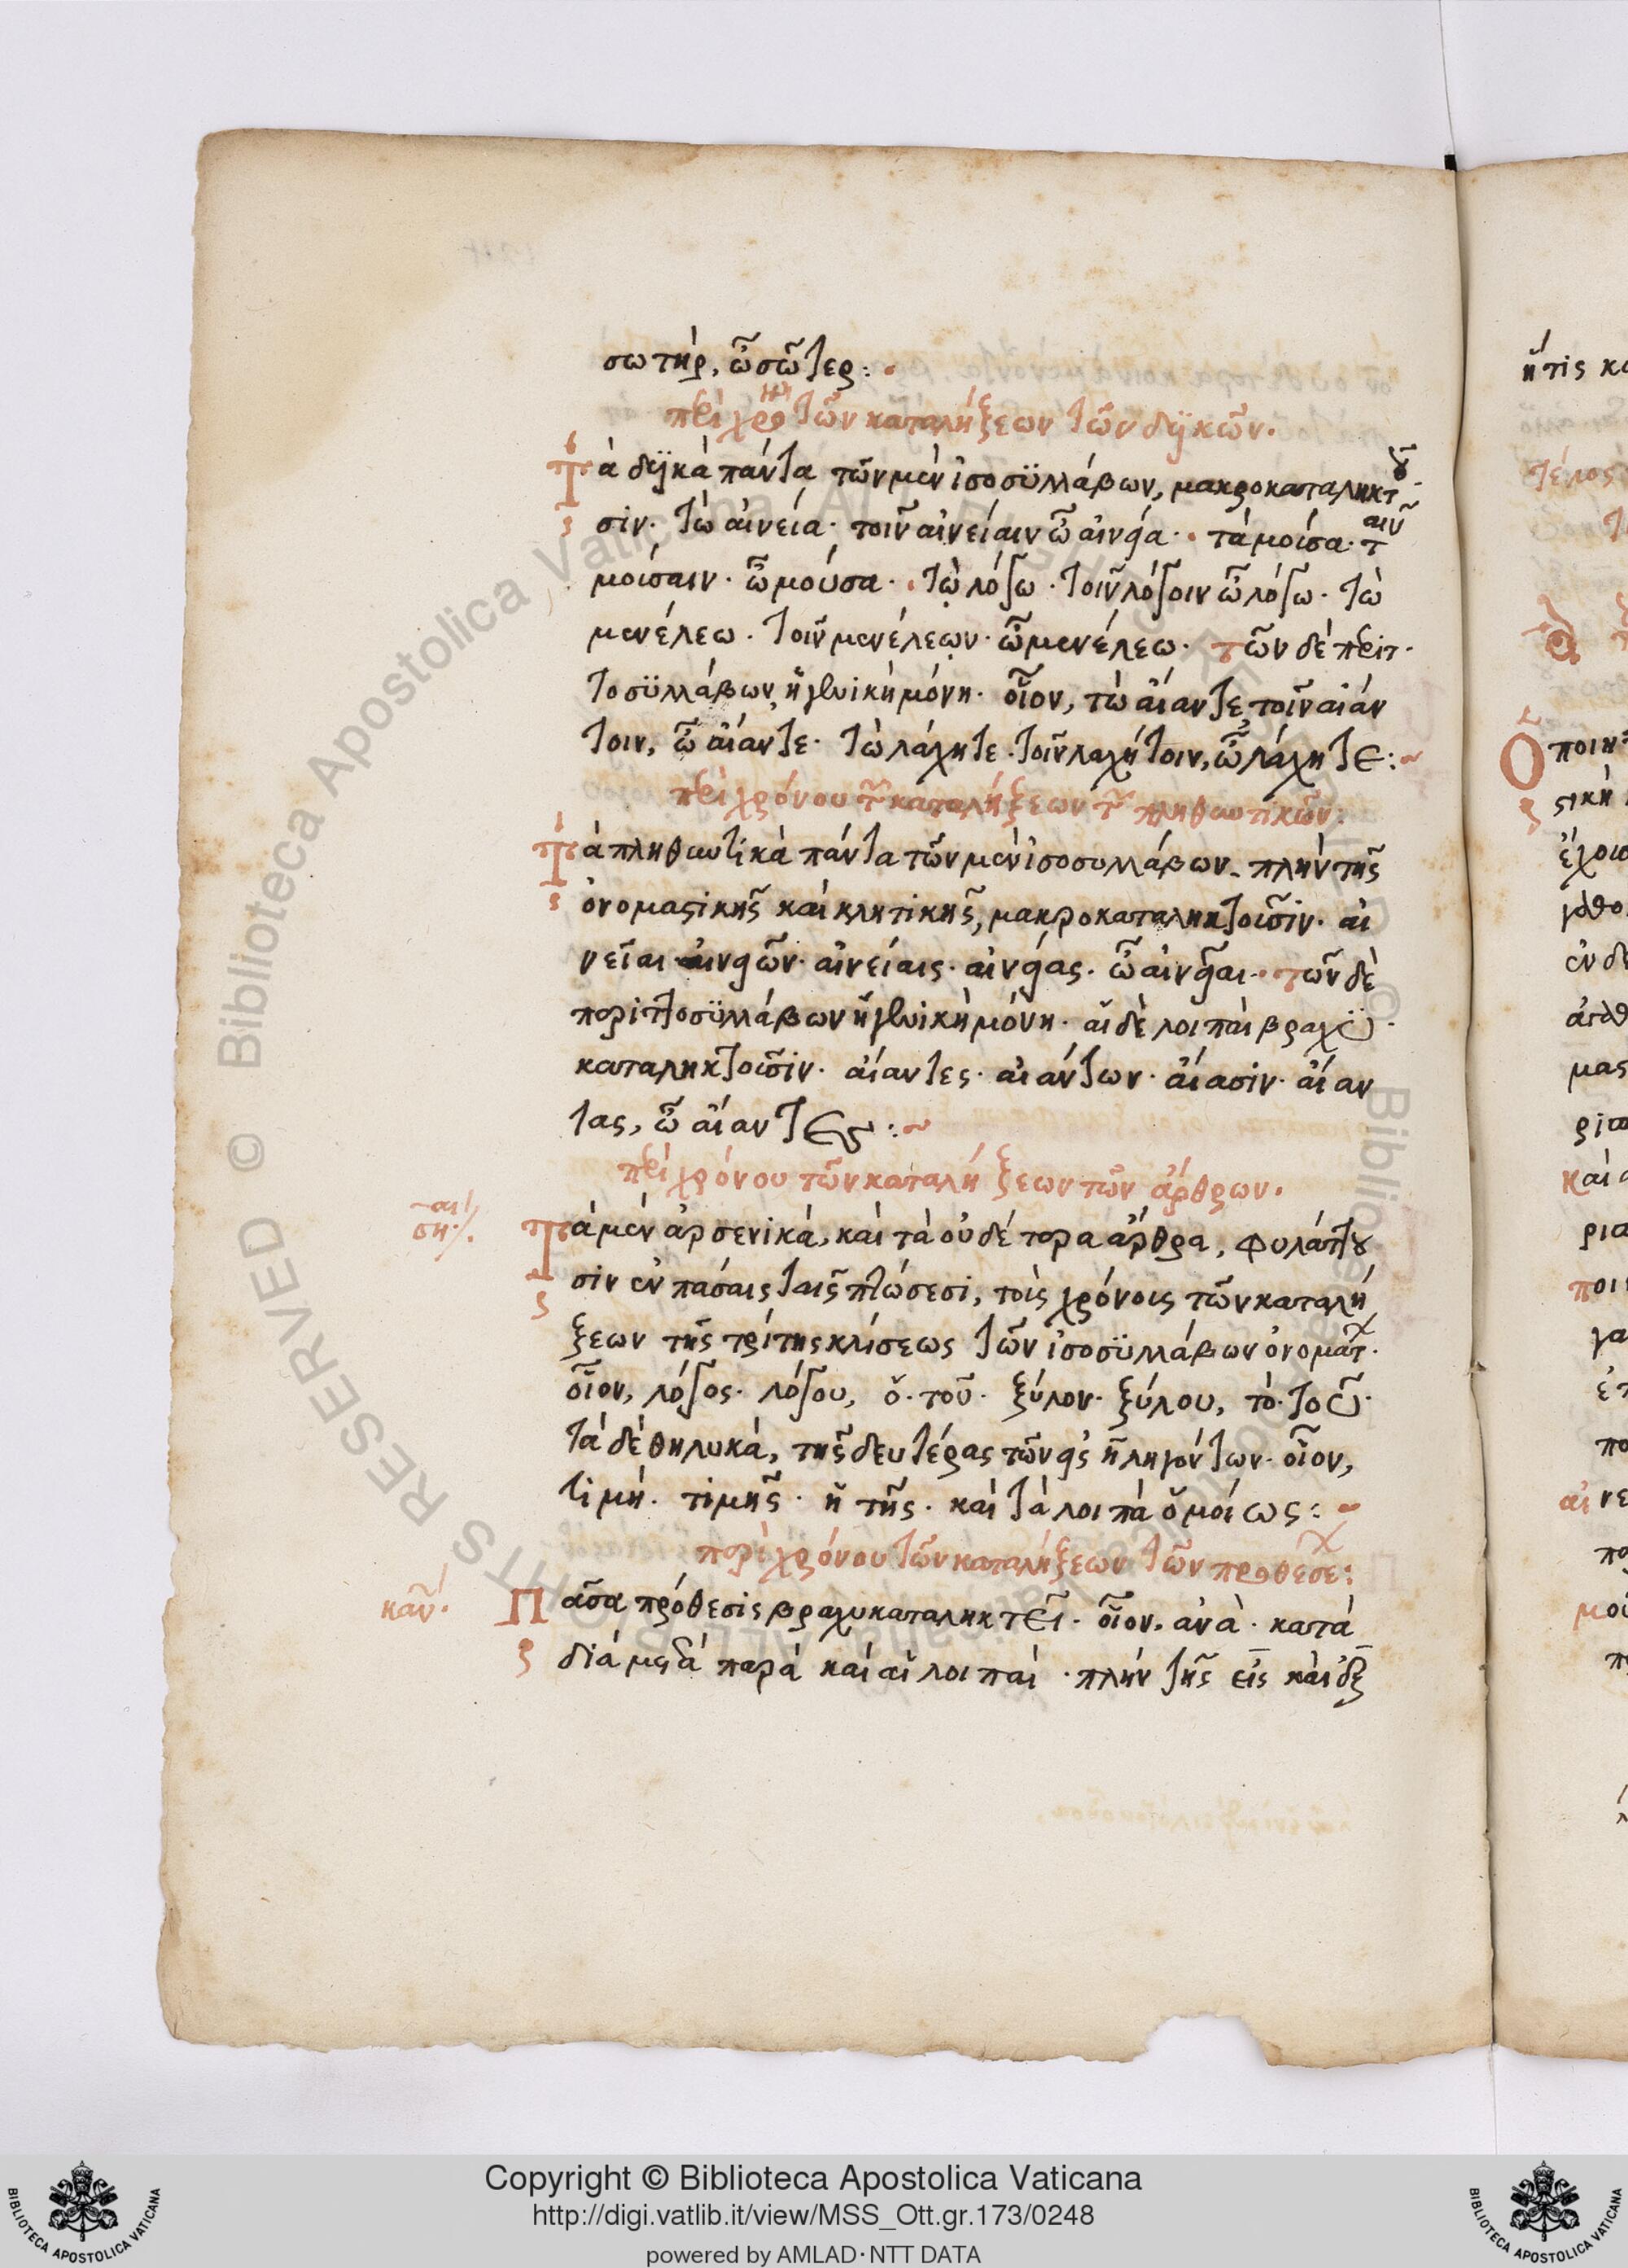 σωτήρ, ὦ σῶτερ:
περὶ χρό τῶν καταλήξεων τῶν δυϊκῶν.
Τὰ δυϊκὰ πάντα τῶν μὲν ἰσοσϋλλάβων, μακροκαταληκτοῦ
σιν. τὼ αἰνεία. τοῖν αἰνείαιν ὦ αἰνεία. τὰ μούσα. ταῖν
μούσαιν. ὦ μούσα. τὼ λόγω. τοῖν λόγοιν ὦ λόγω. τὼ
μενέλεω. τοῖν μενέλεων. ὦ μενέλεω. τῶν δὲ περιτ
τοσϋλλάβων, ἡ γενικὴ μόνη. οἷον, τὼ αἴαντε, τοῖν αἰάν
τοιν, ὦ αἴαντε. τὼ λάχητε. τοῖν λαχήτοιν, ὦ λάχητε:
περὶ χρόνου τῶν καταλήξεων τῶν πληθυντικῶν:
Τὰ πληθυντικὰ πάντα τῶν μὲν ἰσοσυλλάβων. πλὴν τῆς
ὀνομαστικῆς καὶ κλητικῆς, μακροκαταληκτοῦσιν. αἰ
νεῖαι αἰνειῶν. αἰνείαις. αἰνείας. ὦ αἰνεῖαι. τῶν δὲ
περιττοσϋλλάβων ἡ γενικὴ μόνη. αἱ δὲ λοιπαὶ βραχυ
καταληκτοῦσιν. αἴαντες. αἰάντων. αἴασιν. αἴαν
τας, ὦ αἴαντες:
περὶ χρόνου τῶν καταλήξεων τῶν ἄρθρων.
Τὰ μὲν ἀρσενικά, καὶ τὰ οὐδέτερα ἄρθρα, φυλάττου
σιν ἐν πάσαις ταῖς πτώσεσι, τοὺς χρόνους τῶν καταλή
ξεων τῆς τρίτης κλίσεως τῶν ἰσοσϋλλάβων ὀνομάτ.
οἷον, λόγος. λόγου, ὁ. τοῦ. ξύλον. ξύλου, τὸ. τοῦ.
τὰ δὲ θηλυκά, τῆς δευτέρας τῶν εἰς η ληγόντων. οἷον,
τιμή. τιμῆς. ἡ τῆς. καὶ τὰ λοιπὰ ὁμοίως:
περὶ χρόνου τῶν καταλήξεων τῶν προθέσε:
καν.
Πᾶσα πρόθεσις βραχυκαταληκτεῖ. οἷον. ἀνὰ. κατὰ
διὰ μετὰ παρὰ καὶ αἱ λοιπαὶ. πλὴν τῆς εἰς καὶ ἐξ
Copyright © Biblioteca Apostolica Vaticana
http://digi.vatlib.it/view/MSS_Ott.gr.173/0248
powered by AMLAD·NTT DATA